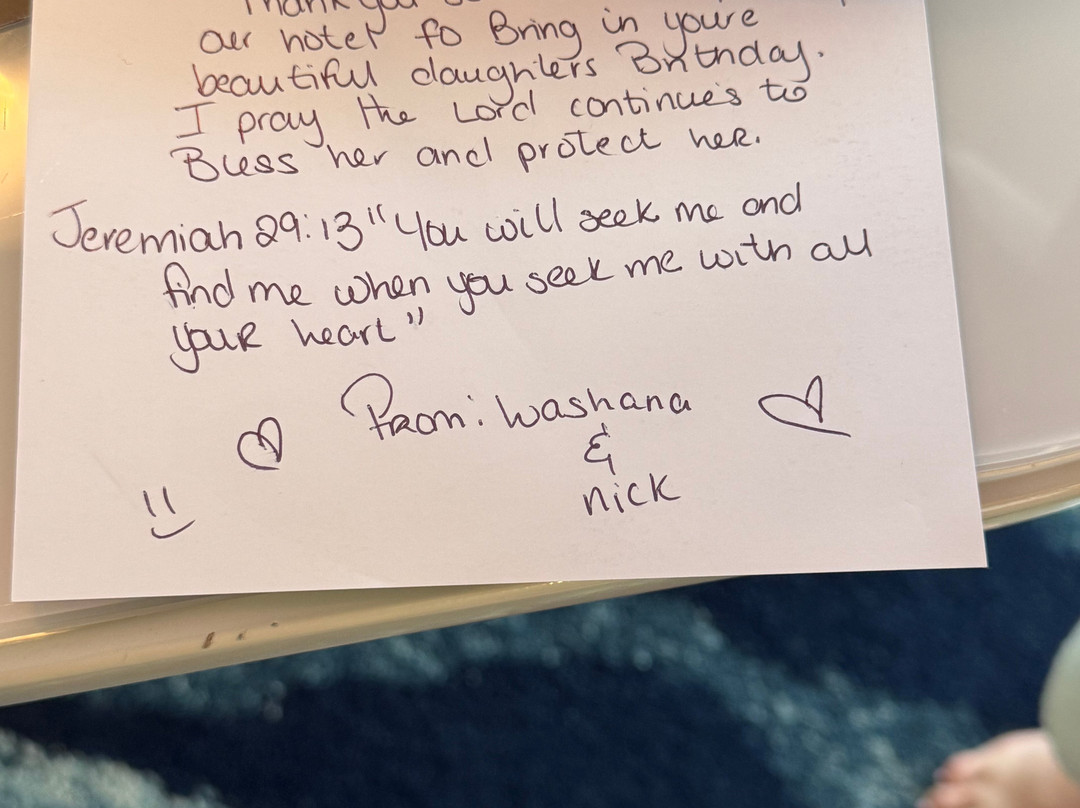 Thank you
our hotel to Bring in youre
beautiful daughters Birthday.
I pray the Lord continue's to
Bless her and protect her.
Jeremiah 29:13 "You will seek me and
find me when you seek me with all
your heart"
From: Washana
&
nick